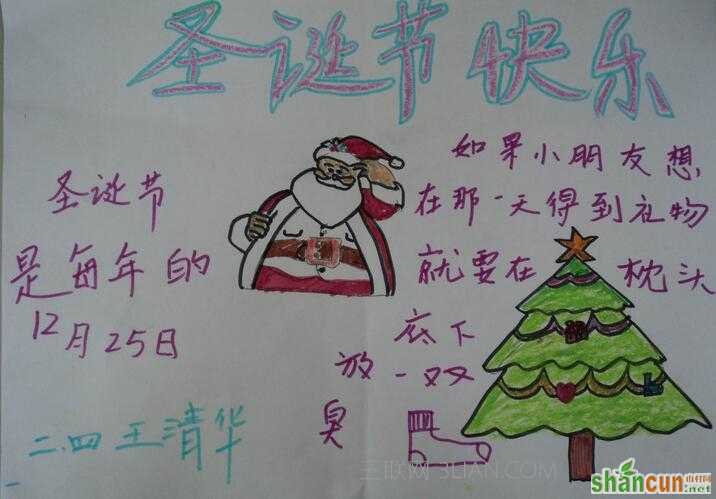 圣诞节快乐
圣诞节
是每年的
12月25日
如果小朋友想
在那一天得到礼物
就要在枕头
底下
放一双
臭
二.四 王清华
三联网 3LIAN.COM
shancun
山村网
.net